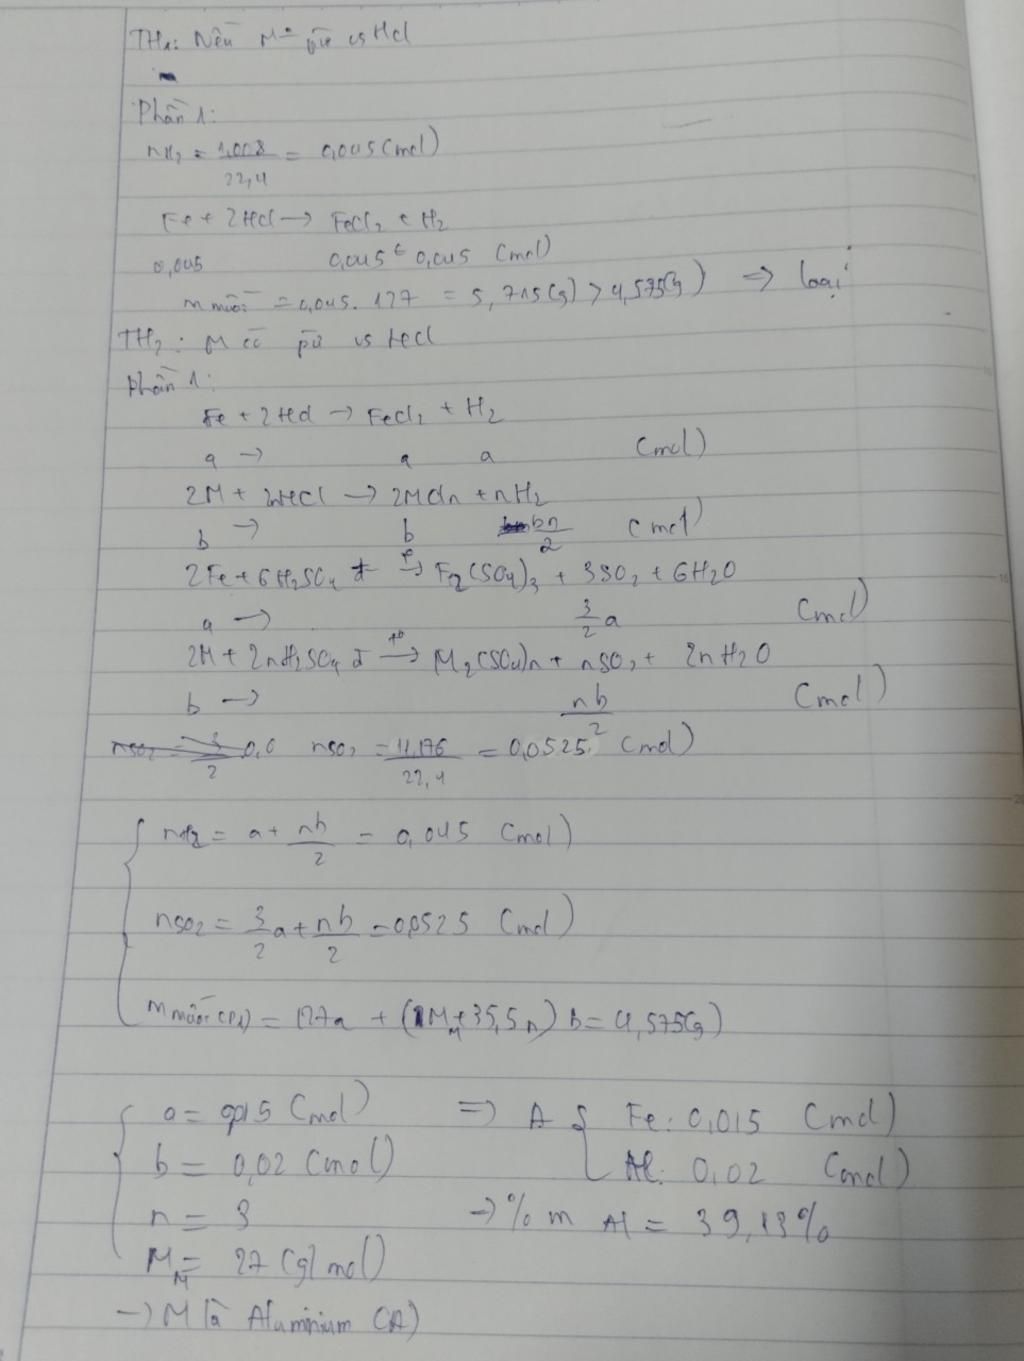 TH1: Nếu M ko pư vs HCl
Phần 1:
nH2 = 1,008/22,4 = 0,045 (mol)
Fe + 2HCl → FeCl2 + H2
0,045 0,045 ← 0,045 (mol)
m muối = 0,045. 127 = 5,715(g) > 4,575(g) => loại
TH2: M có pư vs HCl
Phần 1:
Fe + 2HCl → FeCl2 + H2
a → a a (mol)
2M + 2nHCl → 2MCln + nH2
b → b bn/2 (mol)
2Fe + 6H2SO4 đ t° → Fe2(SO4)3 + 3SO2 + 6H2O
a → 3/2 a (mol)
2M + 2nH2SO4 đ t° → M2(SO4)n + nSO2 + 2nH2O
b → nb/2 (mol)
nSO2 = 11,176/22,4 = 0,0525 (mol)
nH2 = a + nb/2 = 0,045 (mol)
nSO2 = 3/2 a + nb/2 = 0,0525 (mol)
m muối (P1) = 127a + (MM + 35,5n) b = 4,575(g)
a = 0,015 (mol) => A { Fe: 0,015 (mol)
b = 0,02 (mol) Al: 0,02 (mol)
n = 3 → % m Al = 39,13%
MM = 27 (g/mol)
→ M là Aluminium (Al)